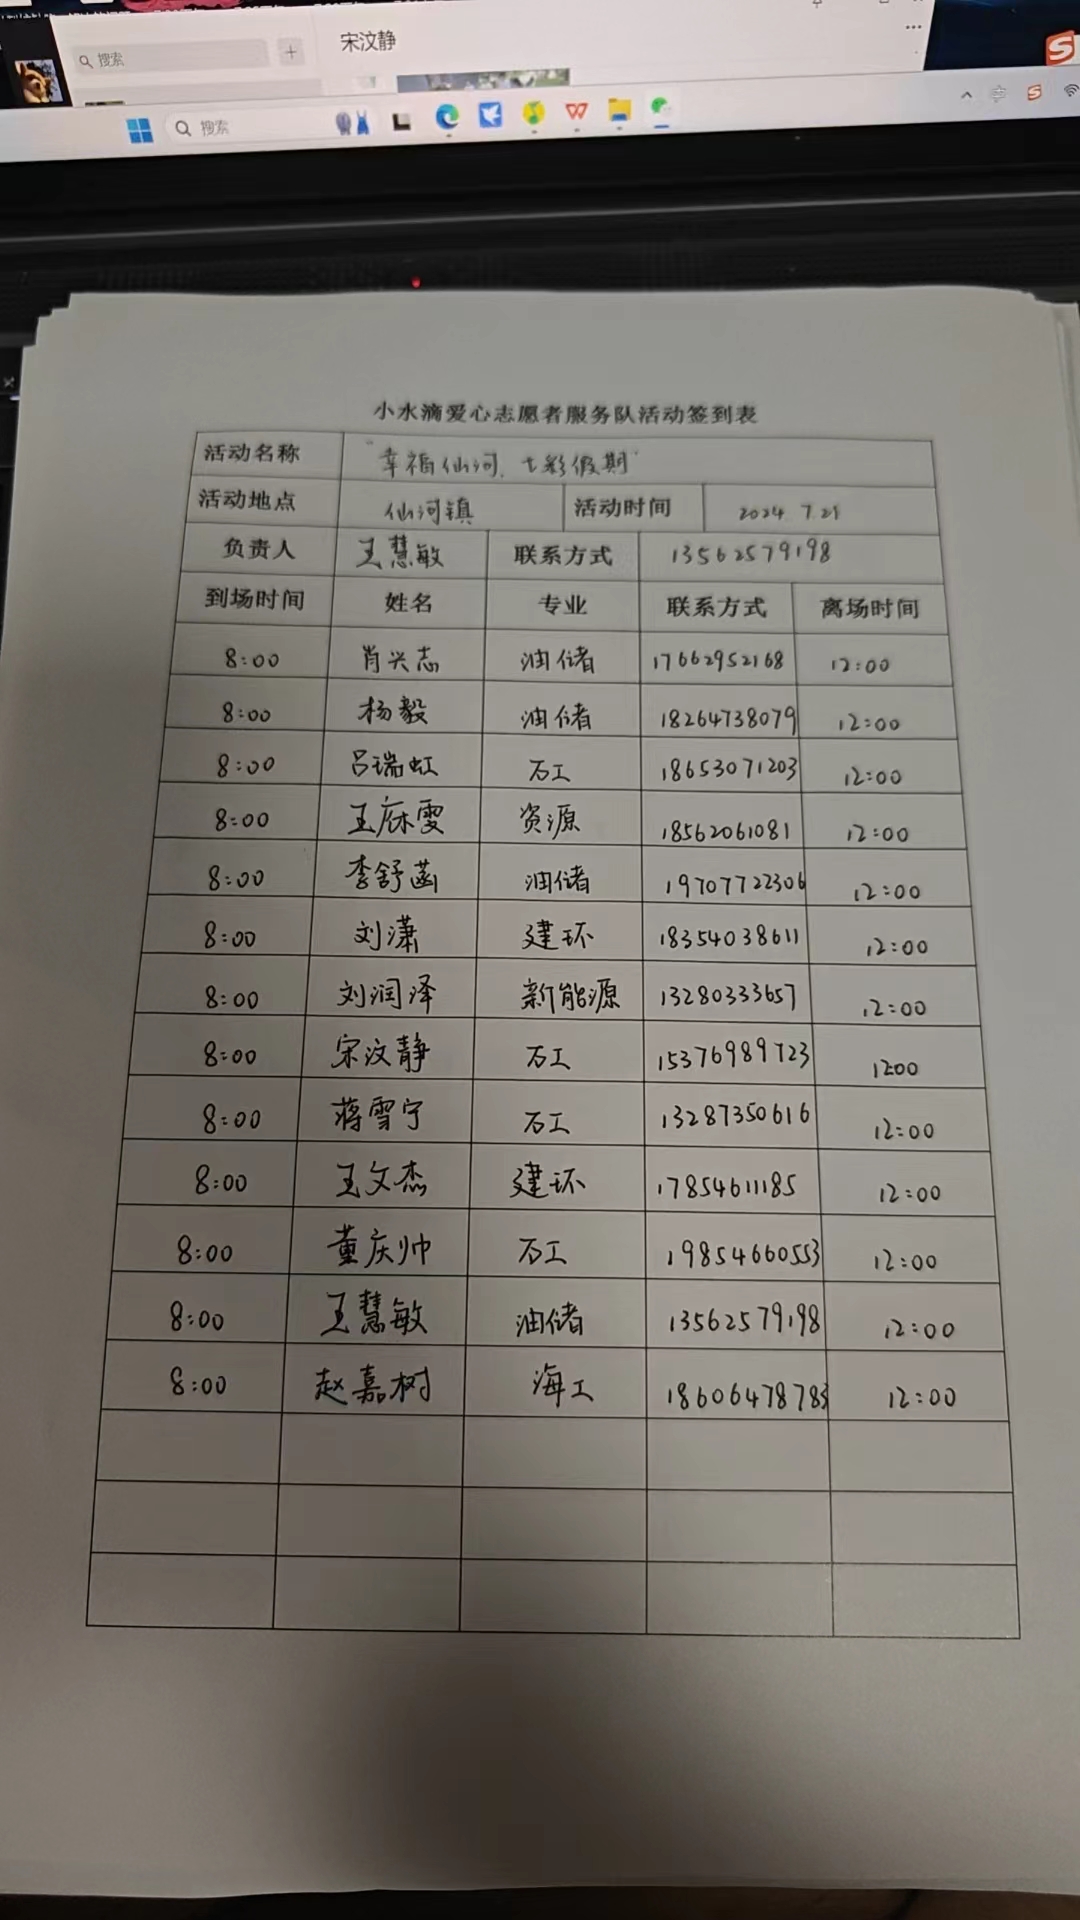 搜索
宋汶静
搜索
小水滴爱心志愿者服务队活动签到表
活动名称 "幸福仙河、七彩假期"
活动地点 仙河镇 活动时间 2024 7.21
负责人 王慧敏 联系方式 13562579198
到场时间 姓名 专业 联系方式 离场时间
8:00 肖兴志 油储 17662952168 12:00
8:00 杨毅 油储 18264738079 12:00
8:00 吕瑞虹 石工 18653071203 12:00
8:00 王庥雯 资源 18562061081 12:00
8:00 李舒菡 油储 19707722306 12:00
8:00 刘潇 建环 18354038611 12:00
8:00 刘润泽 新能源 13280333657 12:00
8:00 宋汶静 石工 15376989723 1200
8:00 蒋雪宁 石工 13287350616 12:00
8:00 王文杰 建环 17854611185 12:00
8:00 董庆帅 石工 19854660553 12:00
8:00 王慧敏 油储 13562579198 12:00
8:00 赵嘉树 海工 18606478783 12:00